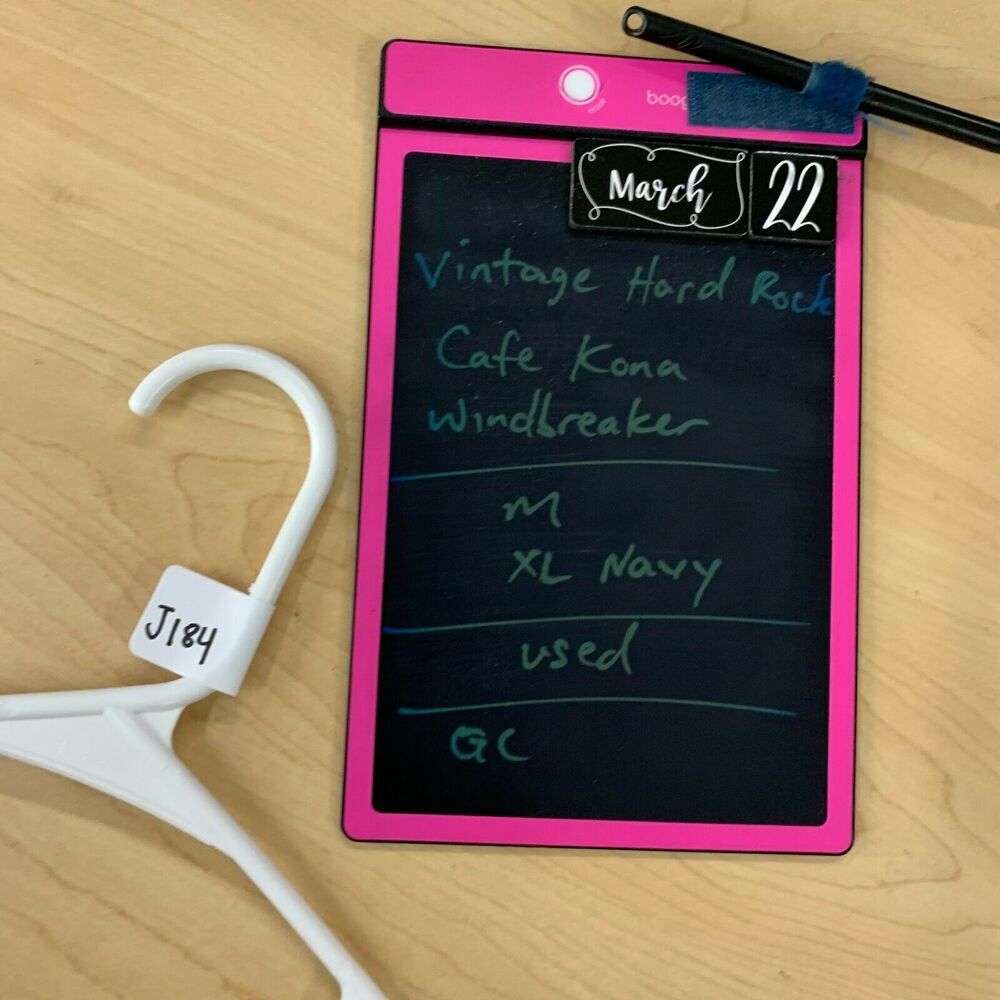 March 22
Vintage Hard Rock
Cafe Kona
Windbreaker
M
XL Navy
used
GC
J184